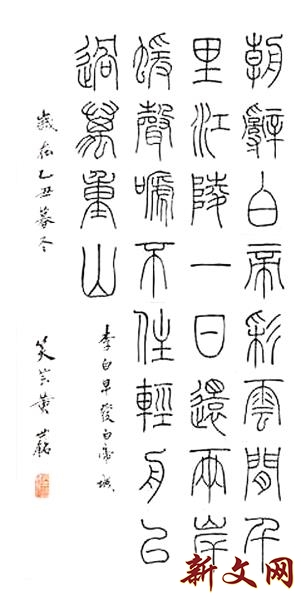 朝辭白帝彩雲間千
里江陵一日還兩岸
蝯聲嗁不住輕舟已
過萬重山
李白早發白帝城
歲在乙丑暮冬
黄
新文网